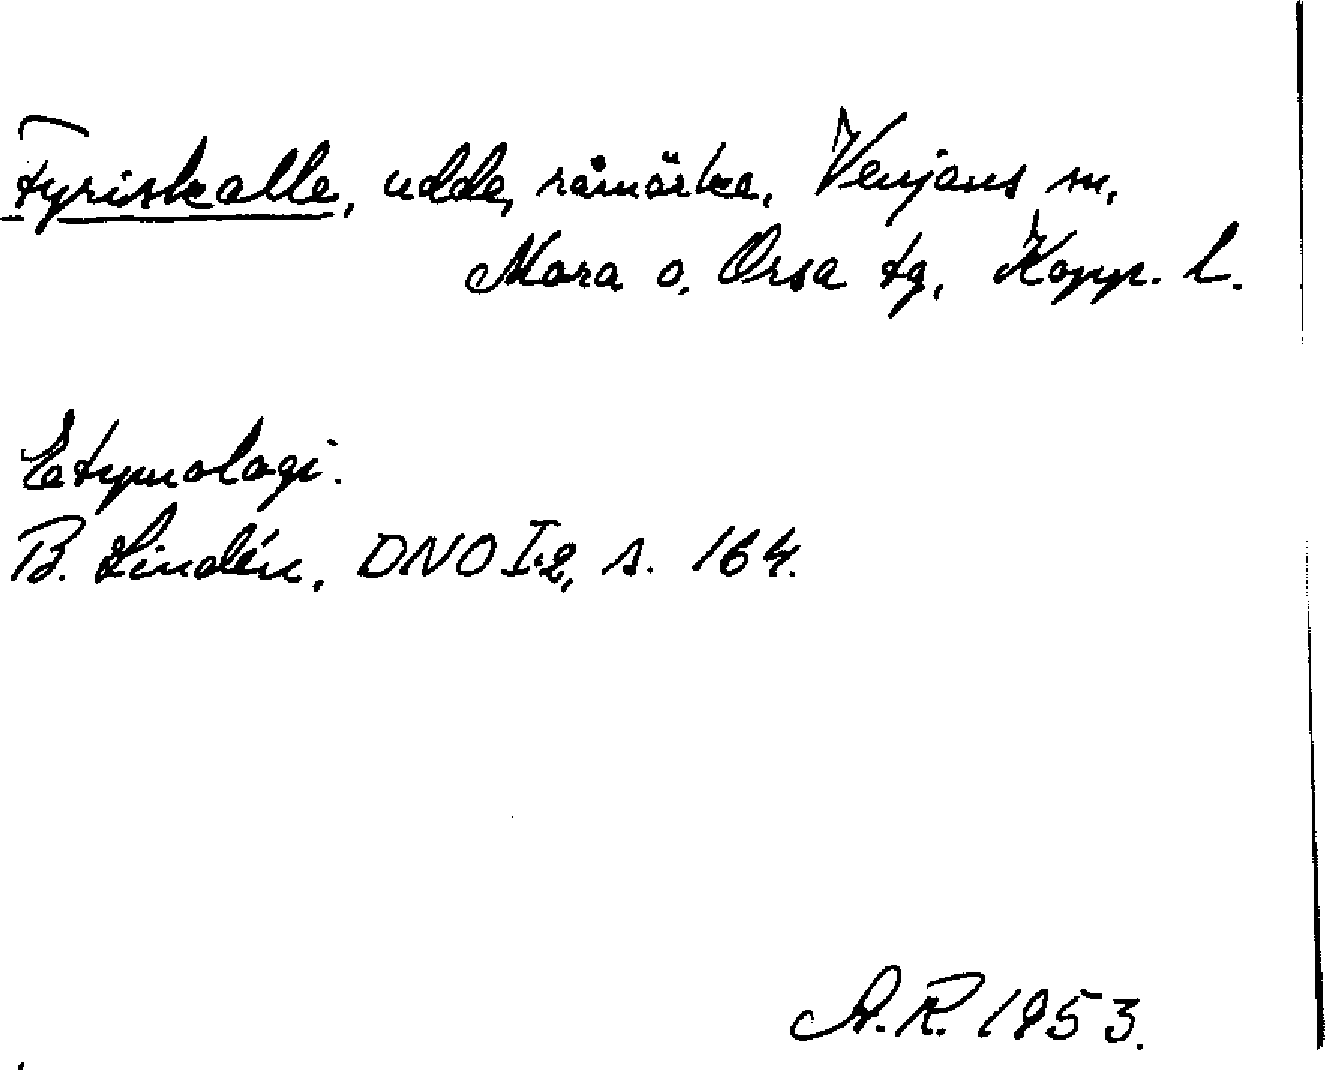 Fyriskalle, udde, råmärke, Venjans sn,
Mora o. Orsa tg, Kopp. l.
Etymologi.
B. Lindén, DNO I:2, s. 164.
A.R. 1953.